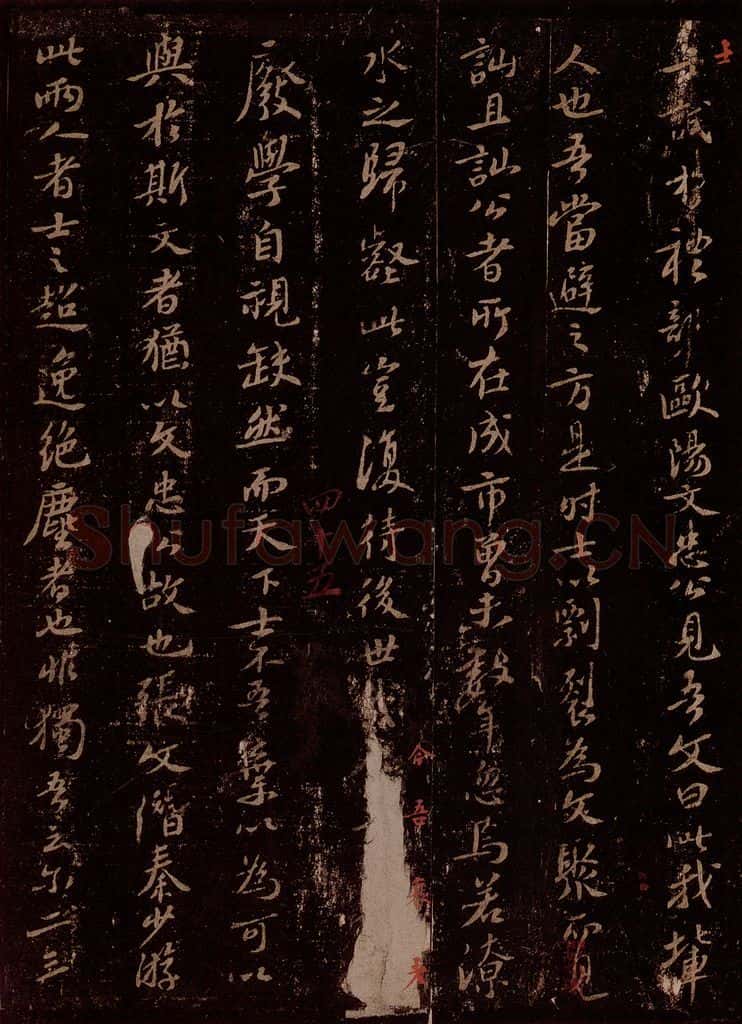 士
試於禮部歐陽文忠公見吾文曰此我輩
人也吾當避之方是時士以剽裂為文聚而見
訕且訕公者所在成市曾未數年忽焉若潦
水之歸壑此豈復待後世
今吾衰老
廢學自視缺然而天下士不吾棄以為可以
四十五
與於斯文者猶以文忠公故也張文潛秦少游
此兩人者士之超逸絕塵者也非獨吾云尔二三
Shufawang.CN